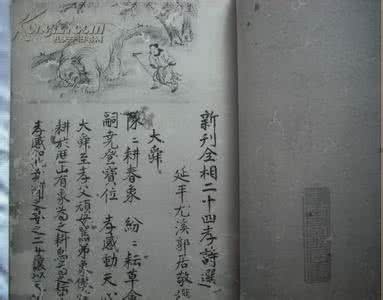 新刊全相二十四孝詩選
延平尤溪郭居敬撰
大舜
隊〻耕春象 紛〻耘草禽
嗣堯登寶位 孝感動天心
大舜至孝父頑母嚚弟象傲
耕於歷山有象為之耕鳥
孝感